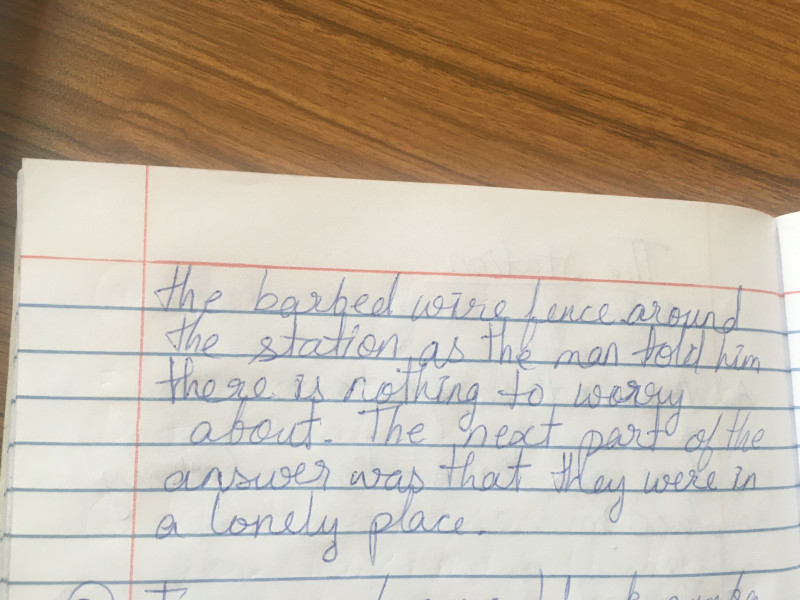 the barbed wire fence around
the station, as the man told him
there is nothing to worry
about. The next part of the
answer was that they were in
a lonely place.